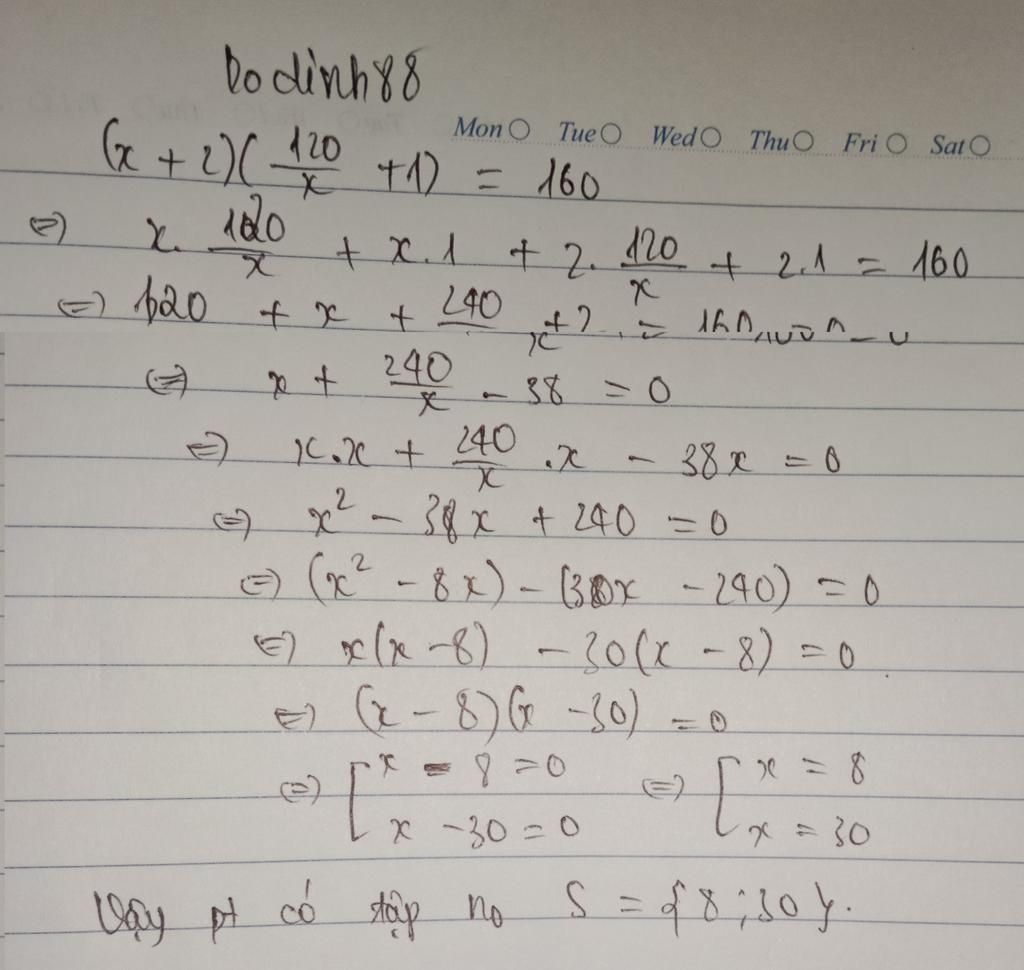 Dodinh88
Mon Tue Wed Thu Fri Sat
(x + 2)(120/x + 1) = 160
⇔ x. 120/x + x.1 + 2. 120/x + 2.1 = 160
⇔ 120 + x + 240/x + 2 =
⇔ x + 240/x - 38 = 0
⇔ x.x + 240/x .x - 38x = 0
⇔ x² - 38x + 240 = 0
⇔ (x² - 8x) - (30x - 240) = 0
⇔ x(x - 8) - 30(x - 8) = 0
⇔ (x - 8)(x - 30) = 0
⇔ [ x - 8 = 0 ⇔ [ x = 8
x - 30 = 0 x = 30
Vậy pt có tập no S = {8;30}.